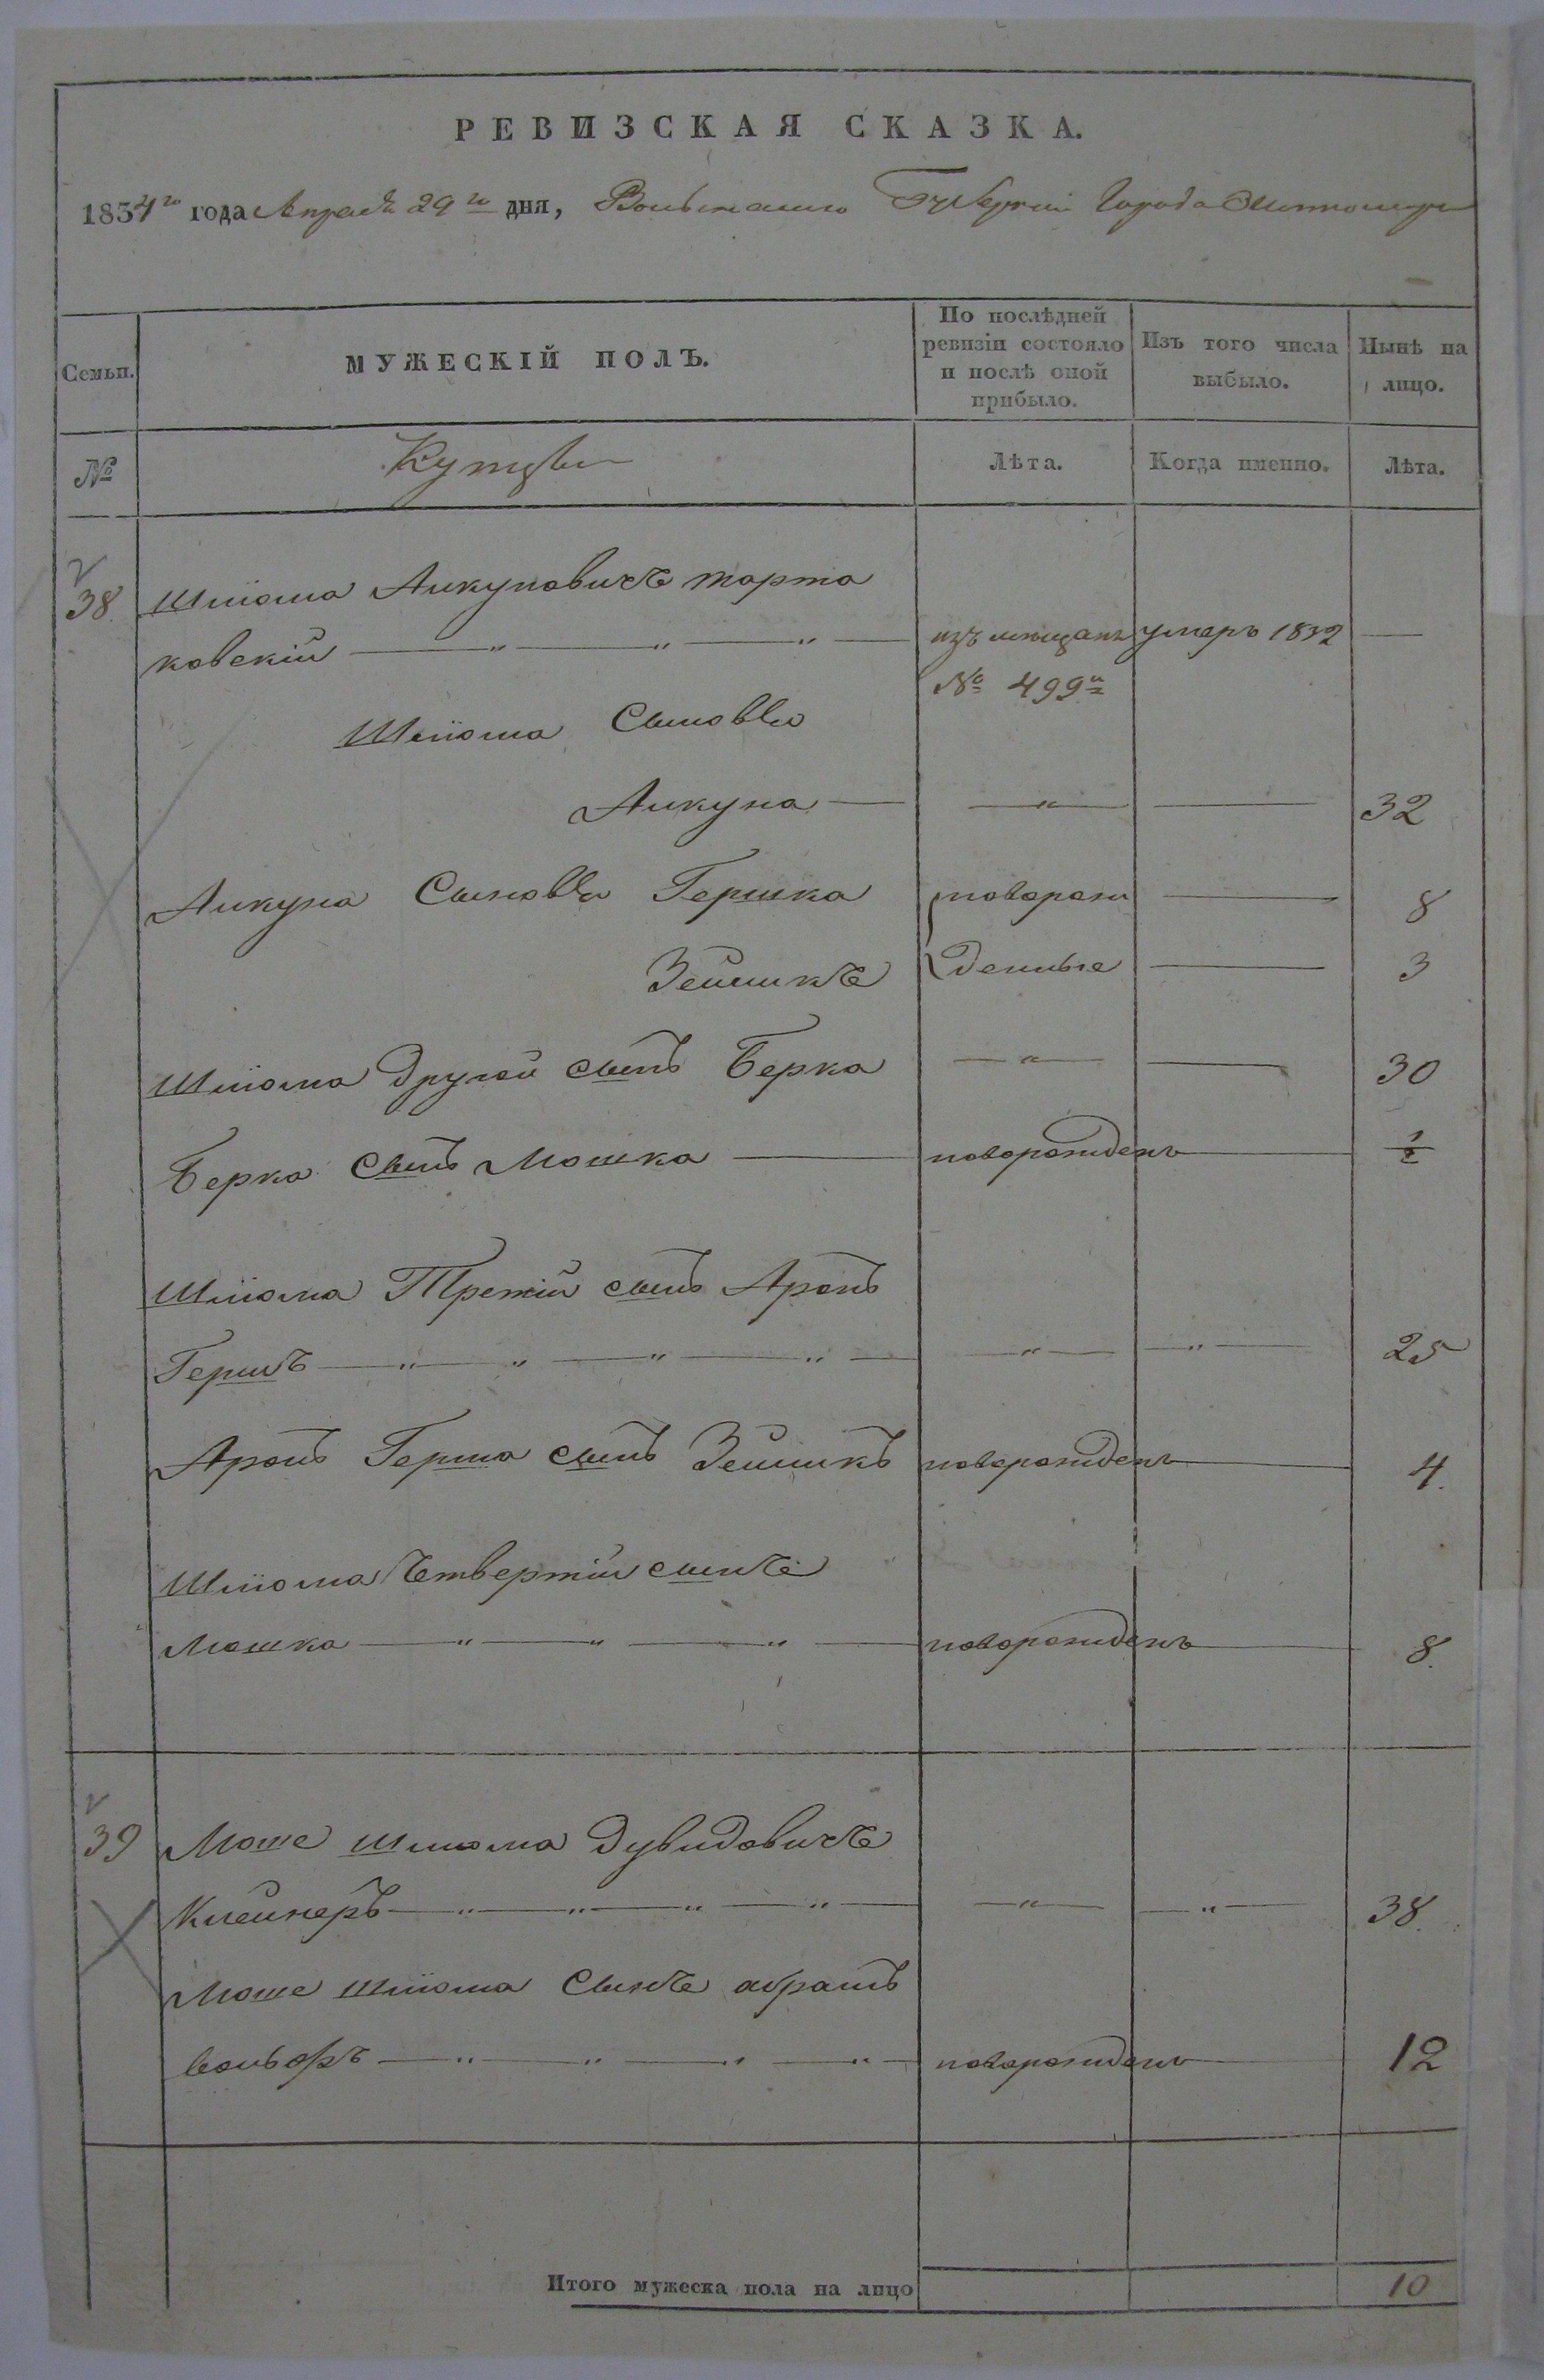 РЕВИЗСКАЯ СКАЗКА.
1834го года Апреля 29го дня, Волынской Губерніи Города Житомира
Семьи. МУЖЕСКІЙ ПОЛЪ. По послѣдней ревизіи состояло и послѣ оной прибыло. Изъ того числа выбыло. Нынѣ на лицо.
№ Купцы Лѣта. Когда именно. Лѣта.
38. Шліома Анкуловичъ тарта
ковскій — „ — „ — „ — изъ мѣщанъ умеръ 1832 —
№ 499й
Шліома Сыновья
— „ — — 32
Сыновья Гершка новорож — 8
Зейликъ денные — 3
Шліома Другой сынъ Берка — „ — — 30
Берка сынъ Мошка — новорожденъ — 1/2
Шліома Третій сынъ Аронъ
Гершъ — „ — „ — „ — „ — — „ — — „ — 25
Аронъ Герша сынъ Зейликъ новорожденъ — 4.
Шліома Четвертій сынъ
Мошка — „ — „ — „ — новорожденъ — 8.
39 Моше Шлиома Дувидовичъ
Клейнеръ — „ — „ — „ — „ — — „ — — „ — 38.
Моше Шліома Сынъ абрамъ
вольфъ — „ — „ — „ — „ — новорожденъ — 12
Итого мужеска пола на лицо 10